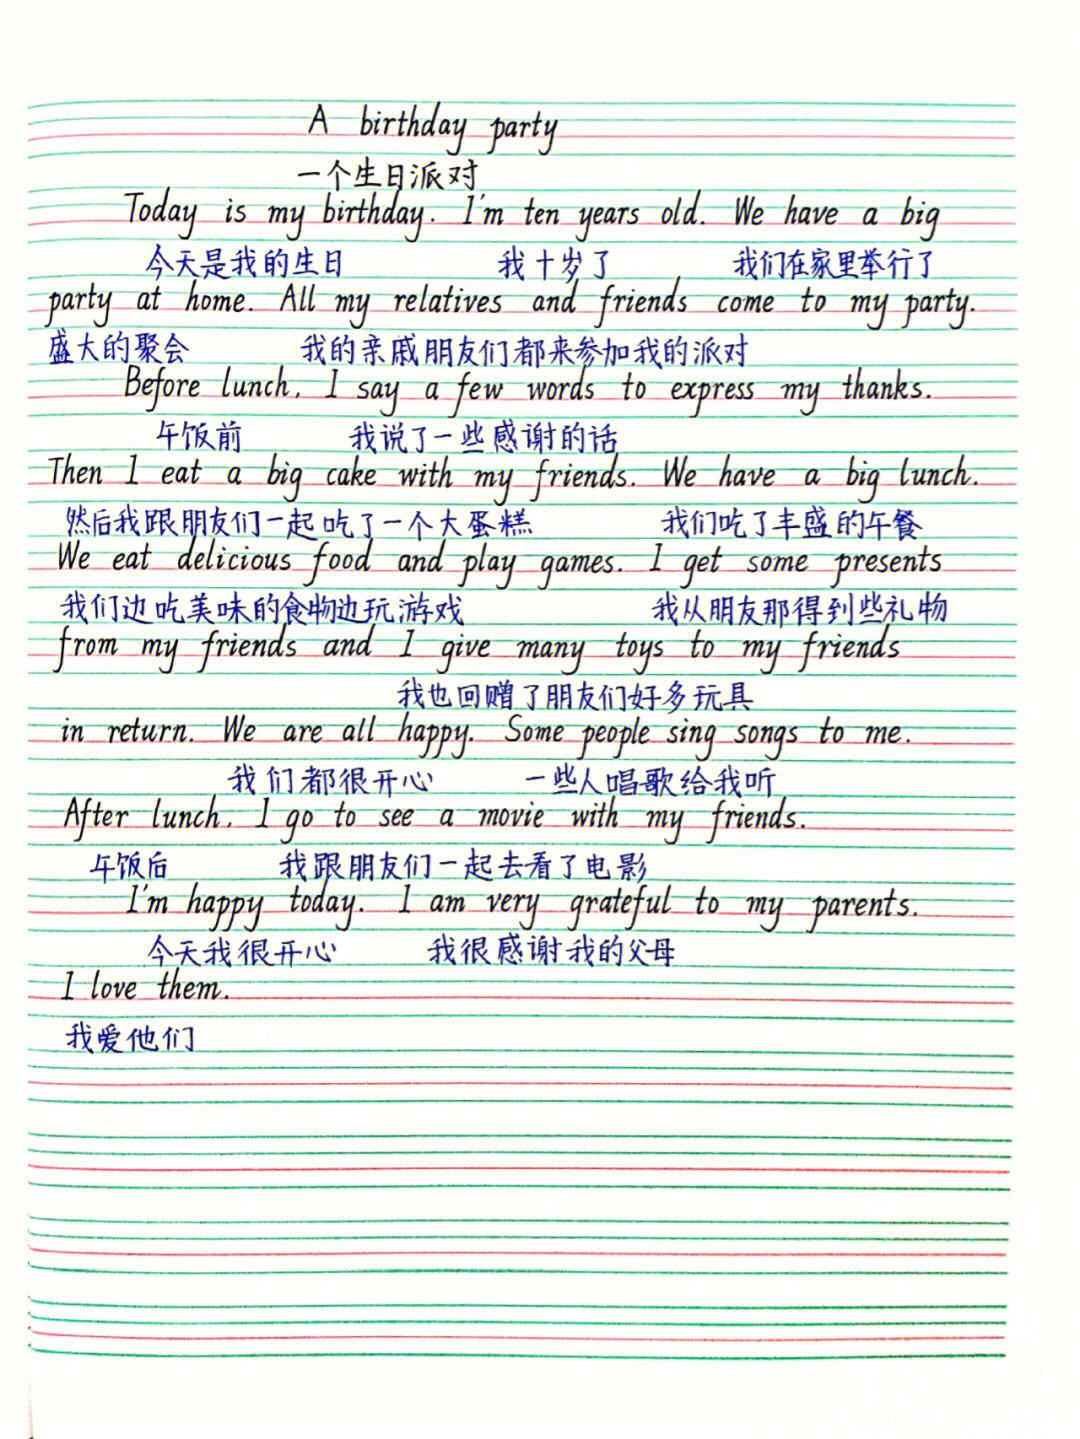 A birthday party
一个生日派对
Today is my birthday. I'm ten years old. We have a big
今天是我的生日 我十岁了 我们在家里举行了
party at home. All my relatives and friends come to my party.
盛大的聚会 我的亲戚朋友们都来参加我的派对
Before lunch, I say a few words to express my thanks.
午饭前 我说了一些感谢的话
Then I eat a big cake with my friends. We have a big lunch.
然后我跟朋友们一起吃了一个大蛋糕 我们吃了丰盛的午餐
We eat delicious food and play games. I get some presents
我们边吃美味的食物边玩游戏 我从朋友那得到些礼物
from my friends and I give many toys to my friends
我也回赠了朋友们好多玩具
in return. We are all happy. Some people sing songs to me.
我们都很开心 一些人唱歌给我听
After lunch, I go to see a movie with my friends.
午饭后 我跟朋友们一起去看了电影
I'm happy today. I am very grateful to my parents.
今天我很开心 我很感谢我的父母
I love them.
我爱他们